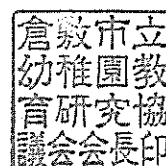 倉敷市立
幼稚園教
育研究協
議会会長印